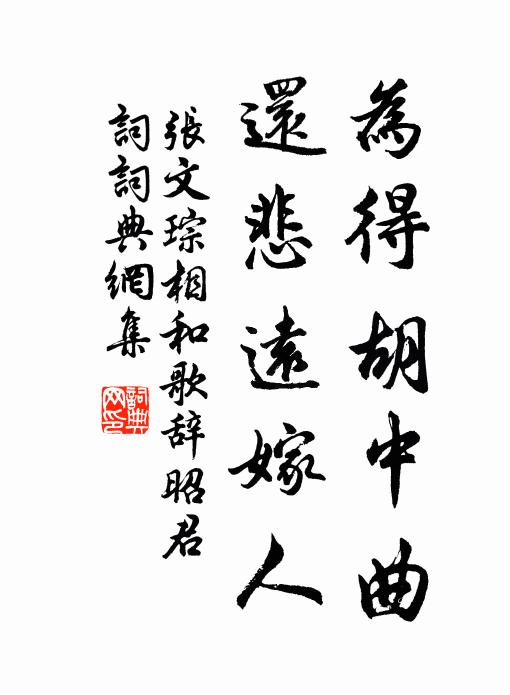 為得胡中曲
還悲遠嫁人
張文琮相和歌辞昭君
詞詞典網集
詞典
网印